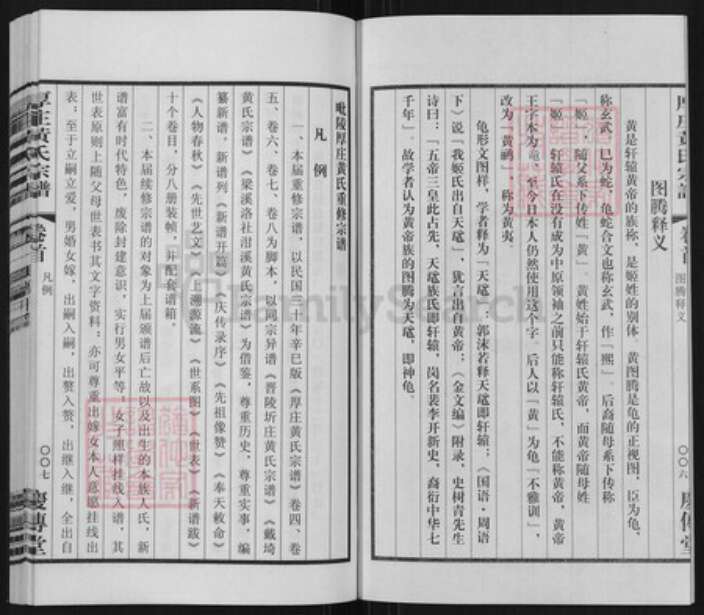 厚庄黄氏宗谱 卷首 图腾释义 〇〇六 庆传堂
图腾释义
黄是轩辕黄帝的族称,是姬姓的别体。黄图腾是龟的正视图,臣为龟,
称玄武,巳为蛇,龟蛇合文也称玄武,作「熙」。后裔随母系下传称
「姬」,随父系下传姓「黄」。黄姓始于轩辕氏黄帝,而黄帝随母姓
「姬」。轩辕氏在没有成为中原领袖之前只能称轩辕氏,不能称黄帝,黄帝
王字本为黾,至今日本人仍然使用这个字。后人以「黄」为龟「不雅训」,
改为「黄鹂」,称为黄夷。
龟形文图样,学者释为「天鼋」:郭沫若释天鼋即轩辕;《国语·周语
下》说「我姬氏出自天鼋」,犹言出自黄帝;《金文编》附录,史树青先生
诗曰:「五帝三皇此占先,天鼋族氏即轩辕,岗名裴李开新史,裔衍中华七
千年」,故学者认为黄帝族的图腾为天鼋,即神龟。
毗陵厚庄黄氏重修宗谱
凡例
一、本届重修宗谱,以民国三十年辛巳版《厚庄黄氏宗谱》卷四、卷
五、卷六、卷七、卷八为脚本,以同宗异谱《晋陵圻庄黄氏宗谱》《戴埼
黄氏宗谱》《梁溪洛社泔溪黄氏宗谱》为借鉴,尊重历史,尊重实事,编
纂新谱,新谱列《新谱开篇》《庆传录序》《先祖像赞》《奉天敕命》
《人物春秋》《先世艺文》《上溯源流》《世系图》《世表》《新谱跋》
十个卷目,分八册装帧,并配套谱箱。
二、本届续修宗谱的对象为上届颁谱后亡故以及出生的本族人氏,新
谱富有时代特色,废除封建意识,实行男女平等:女子照样挂线入谱,其
世表原则上随父母世表书其文字资料;亦可尊重出嫁女本人意愿挂线出
表;至于立嗣立爱,男婚女嫁,出嗣入嗣,出赘入赘,出继入继,全出自
厚庄黄氏宗谱 卷首 凡例 〇〇七 庆传堂
FamilySearch